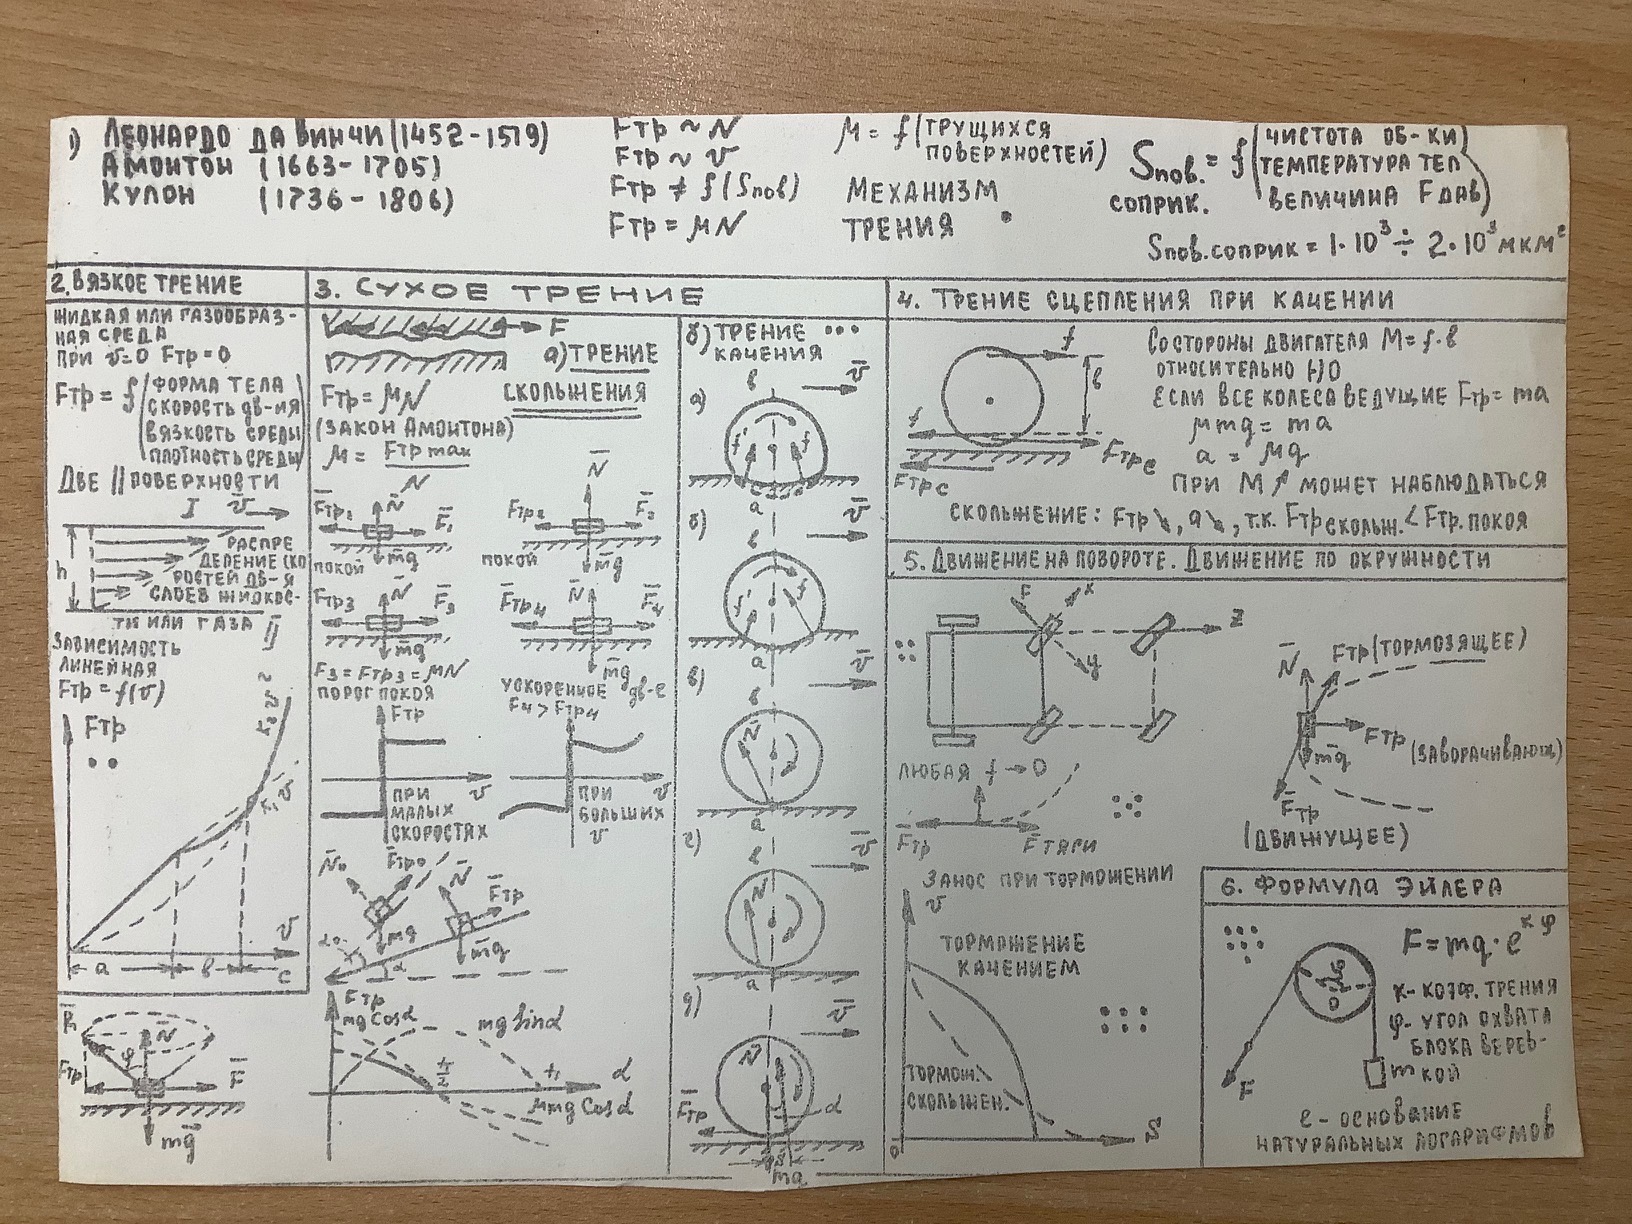 1) ЛЕОНАРДО ДА ВИНЧИ (1452-1519)
АМОНТОН (1663-1705)
КУЛОН (1736-1806)
Fтр ~ N
Fтр ~ v
Fтр ≠ f(Sпов)
Fтр = μN
μ = f(ТРУЩИХСЯ
ПОВЕРХНОСТЕЙ)
МЕХАНИЗМ
ТРЕНИЯ •
Sпов. = f(ЧИСТОТА ОБ-КИ
СОПРИК. ТЕМПЕРАТУРА ТЕЛ
ВЕЛИЧИНА Fдав)
Sпов.соприк = 1·10³ ÷ 2·10³ мкм²
2. ВЯЗКОЕ ТРЕНИЕ
ЖИДКАЯ ИЛИ ГАЗООБРАЗ-
НАЯ СРЕДА
ПРИ v=0 Fтр=0
Fтр = f(ФОРМА ТЕЛА
СКОРОСТЬ ДВ-ИЯ
ВЯЗКОСТЬ СРЕДЫ
ПЛОТНОСТЬ СРЕДЫ)
ДВЕ || ПОВЕРХНОСТИ
I v
h
РАСПРЕ
ДЕЛЕНИЕ СКО
РОСТЕЙ ДВ-Я
СЛОЕВ ЖИДКОС-
ТИ ИЛИ ГАЗА II
ЗАВИСИМОСТЬ
ЛИНЕЙНАЯ
Fтр = f(v)
Fтр
••
v
a b c
N
φ
Fтр F
mg
3. СУХОЕ ТРЕНИЕ
F
а) ТРЕНИЕ
СКОЛЬЖЕНИЯ
Fтр = μN
(ЗАКОН АМОНТОНА)
μ = Fтр max
N
Fтр1 N F1
mg
ПОКОЙ
N
Fтр2 F2
mg
ПОКОЙ
Fтр3 N F3
mg
F3 = Fтр3 = μN
ПОРОГ ПОКОЯ
Fтр4 N F4
mg
УСКОРЕННОЕ ДВ-Е
F4 > Fтр4
Fтр
v
ПРИ
МАЛЫХ
СКОРОСТЯХ
v
ПРИ
БОЛЬШИХ
v
N0 Fтр0 N Fтр
mg mg
α0 α
Fтр
mg Cosα
mg Sinα
π/2 α
μmg Cosα
б) ТРЕНИЕ •••
КАЧЕНИЯ
а) в v
f' f
а
б) в v
f' f
а
в) в v
N
а
г) в v
N
а
д) v
N
Fтр α
mg
4. ТРЕНИЕ СЦЕПЛЕНИЯ ПРИ КАЧЕНИИ
f
в
f
Fтрс
Fтрс
СО СТОРОНЫ ДВИГАТЕЛЯ M = f·в
ОТНОСИТЕЛЬНО
ЕСЛИ ВСЕ КОЛЕСА ВЕДУЩИЕ Fтр = ma
μmg = ma
a = μg
ПРИ M↗ МОЖЕТ НАБЛЮДАТЬСЯ
СКОЛЬЖЕНИЕ: Fтр↘, a↘, т.к. Fтр скольж. < Fтр. покоя
5. ДВИЖЕНИЕ НА ПОВОРОТЕ. ДВИЖЕНИЕ ПО ОКРУЖНОСТИ
F x
z
y
N
Fтр (ТОРМОЗЯЩЕЕ)
Fтр (ЗАВОРАЧИВАЮЩ)
mg
Fтр
(ДВИЖУЩЕЕ)
ЛЮБАЯ f → 0
Fтр Fтяги
ЗАНОС ПРИ ТОРМОЖЕНИИ
v
ТОРМОЖЕНИЕ
КАЧЕНИЕМ
ТОРМОЖ.
СКОЛЬЖЕН.
0 S
6. ФОРМУЛА ЭЙЛЕРА
F = mg·e^κφ
φ
0
κ- КОЭФ. ТРЕНИЯ
φ- УГОЛ ОХВАТА
БЛОКА ВЕРЕВ-
КОЙ
m
F
e - ОСНОВАНИЕ
НАТУРАЛЬНЫХ ЛОГАРИФМОВ